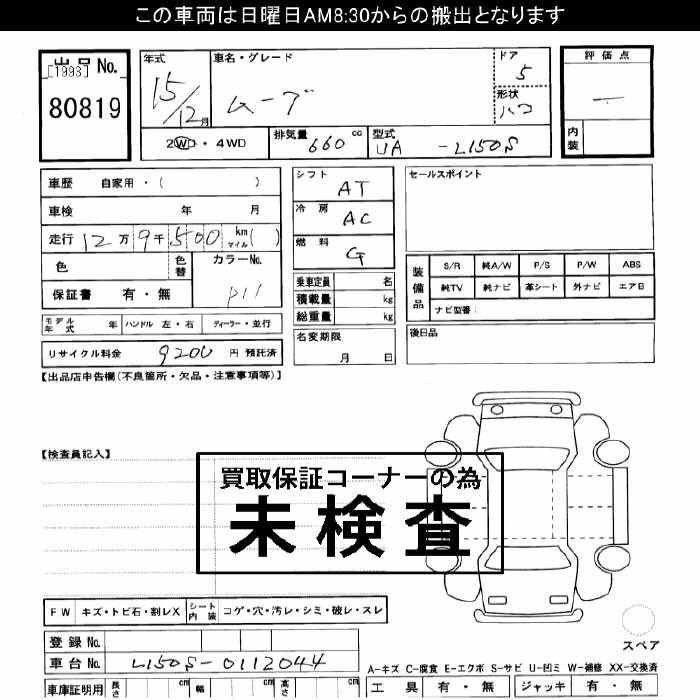 この車両は日曜日AM8:30からの搬出となります
出品 No.
[1993]
80819
年式
15/12月
車名・グレード
ムーブ
ドア
5
形状
ハコ
評価点
—
内装
2WD・4WD
排気量 660 cc
型式 UA -L150S
車歴 自家用・( )
車検 年 月
走行 12万9千500 km マイル( )
色 色替
カラーNo.
P11
保証書 有・無
モデル年式 年 ハンドル 左・右 ディーラー・並行
リサイクル料金 9200 円 預託済
シフト AT
冷房 AC
燃料 G
乗車定員 名
積載量 kg
総重量 kg
名変期限
月 日
セールスポイント
装備品
S/R 純A/W P/S P/W ABS
純TV 純ナビ 革シート 外ナビ エアB
ナビ型番:
後日品
【出品店申告欄(不良箇所・欠品・注意事項等)】
【検査員記入】
買取保証コーナーの為
未検査
FW キズ・トビ石・割レX シート内装 コゲ・穴・汚レ・シミ・破レ・スレ
登録 No.
車台 No. L150S-0112044
車庫証明用 長さ cm 幅 cm 高さ cm
スペア
A-キズ C-腐食 E-エクボ S-サビ U-凹ミ W-補修 XX-交換済
工具 有・無 ジャッキ 有・無